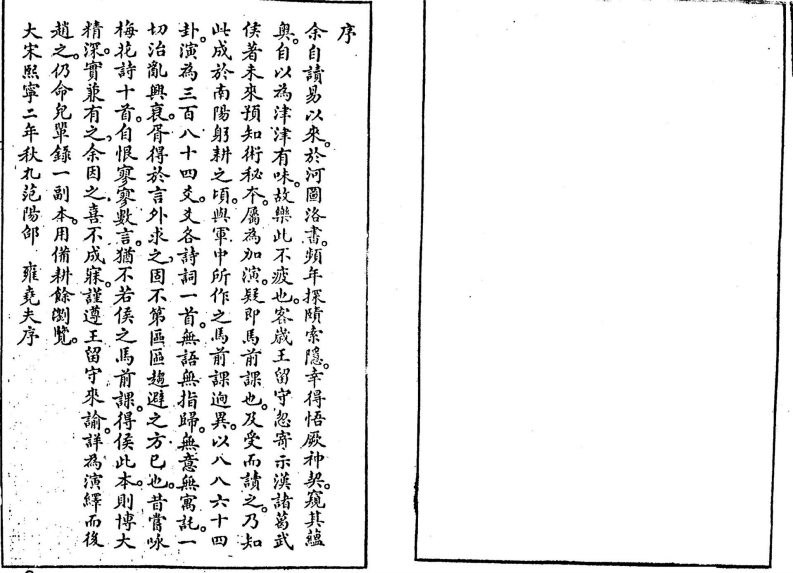 序
余自讀易以來。於河圖洛書。頻年探賾索隱。幸得悟厥神契。窺其蘊
奧。自以為津津有味。故樂此不疲也。客歲王留守忽寄示漢諸葛武
侯著未來預知術秘本。屬為加演。疑即馬前課也。及受而讀之。乃知
此成於南陽躬耕之頃。與軍中所作之馬前課迥異。以八八六十四
卦。演為三百八十四爻。爻各詩詞一首。無語無指歸。無意無寓託。一
切治亂興衰。胥得於言外求之。固不第區區趨避之方已也。昔嘗咏
梅花詩十首。自恨寥寥數言。猶不若侯之馬前課。得侯此本。則博大
精深。實兼有之。余因之喜不成寐。謹遵王留守來諭。詳為演繹而後
趙之。仍命兒單錄一副本。用備耕餘瀏覽。
大宋熙寧二年秋九范陽邵 雍堯夫序